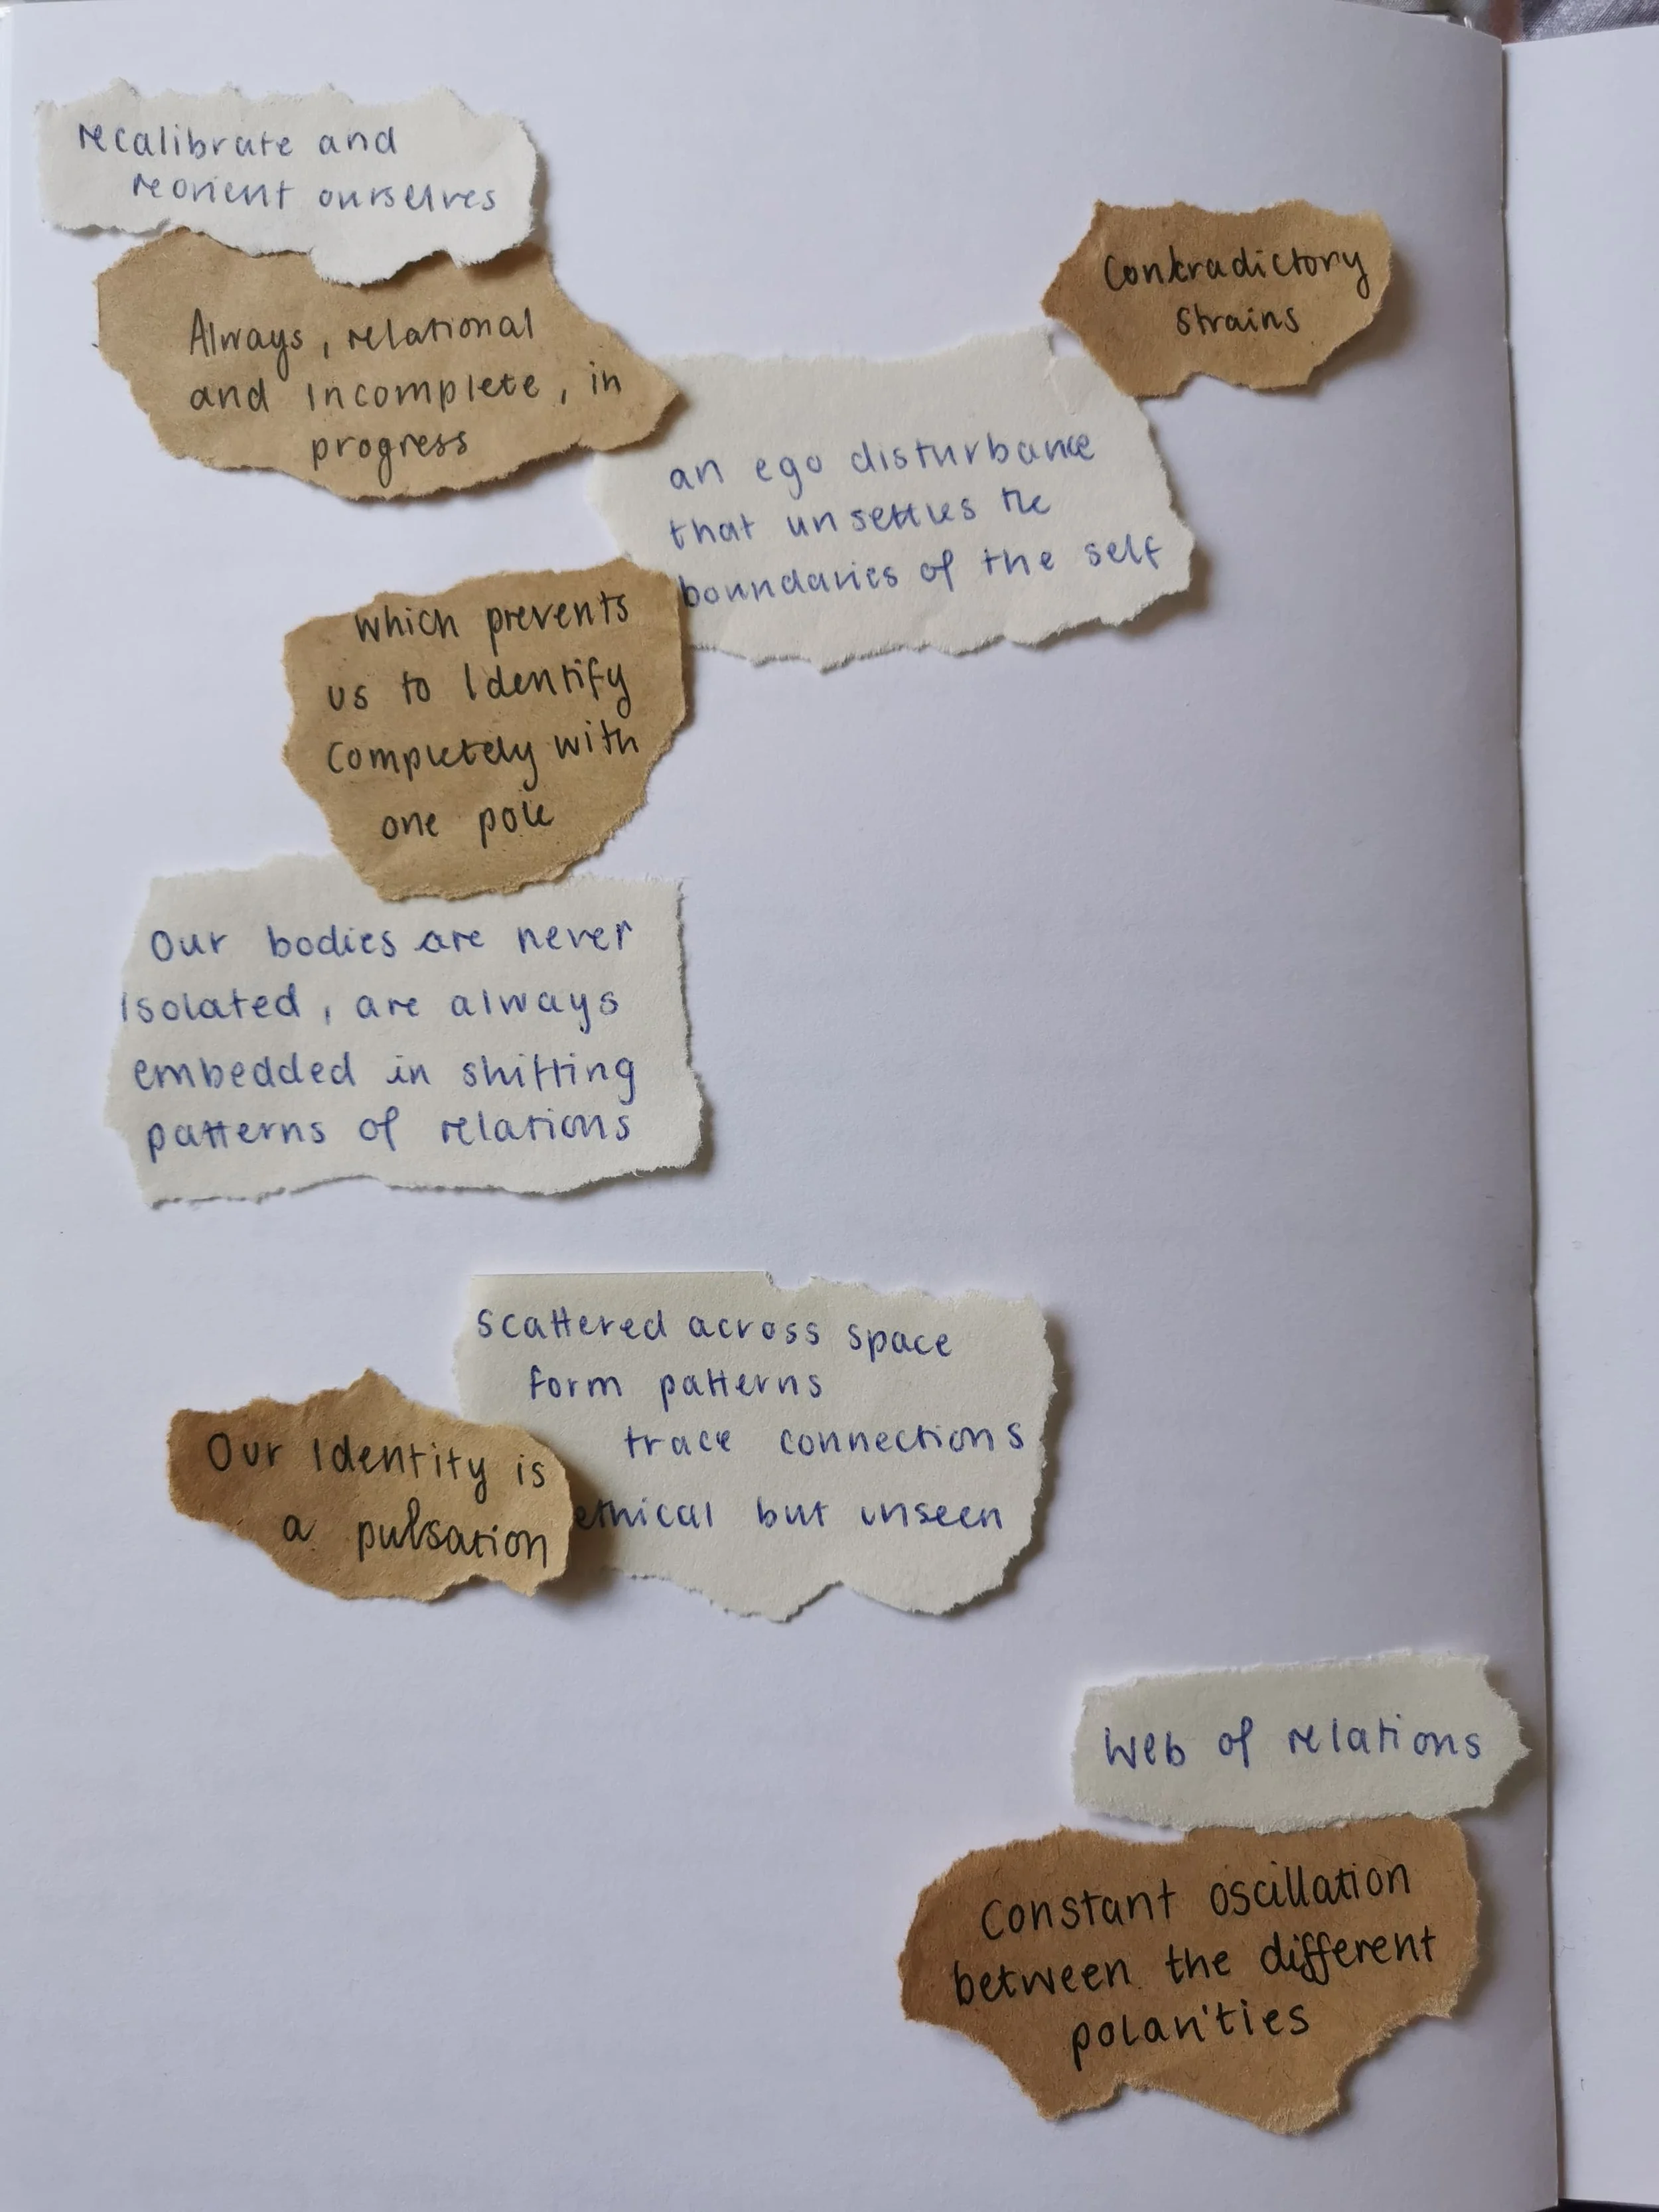 recalibrate and
reorient ourselves
Always, relational
and incomplete, in
progress
Contradictory
strains
an ego disturbance
that unsettles the
boundaries of the self
which prevents
us to identify
completely with
one pole
Our bodies are never
isolated, are always
embedded in shifting
patterns of relations
scattered across space
form patterns
trace connections
ethical but unseen
Our identity is
a pulsation
Web of relations
Constant oscillation
between the different
polarities